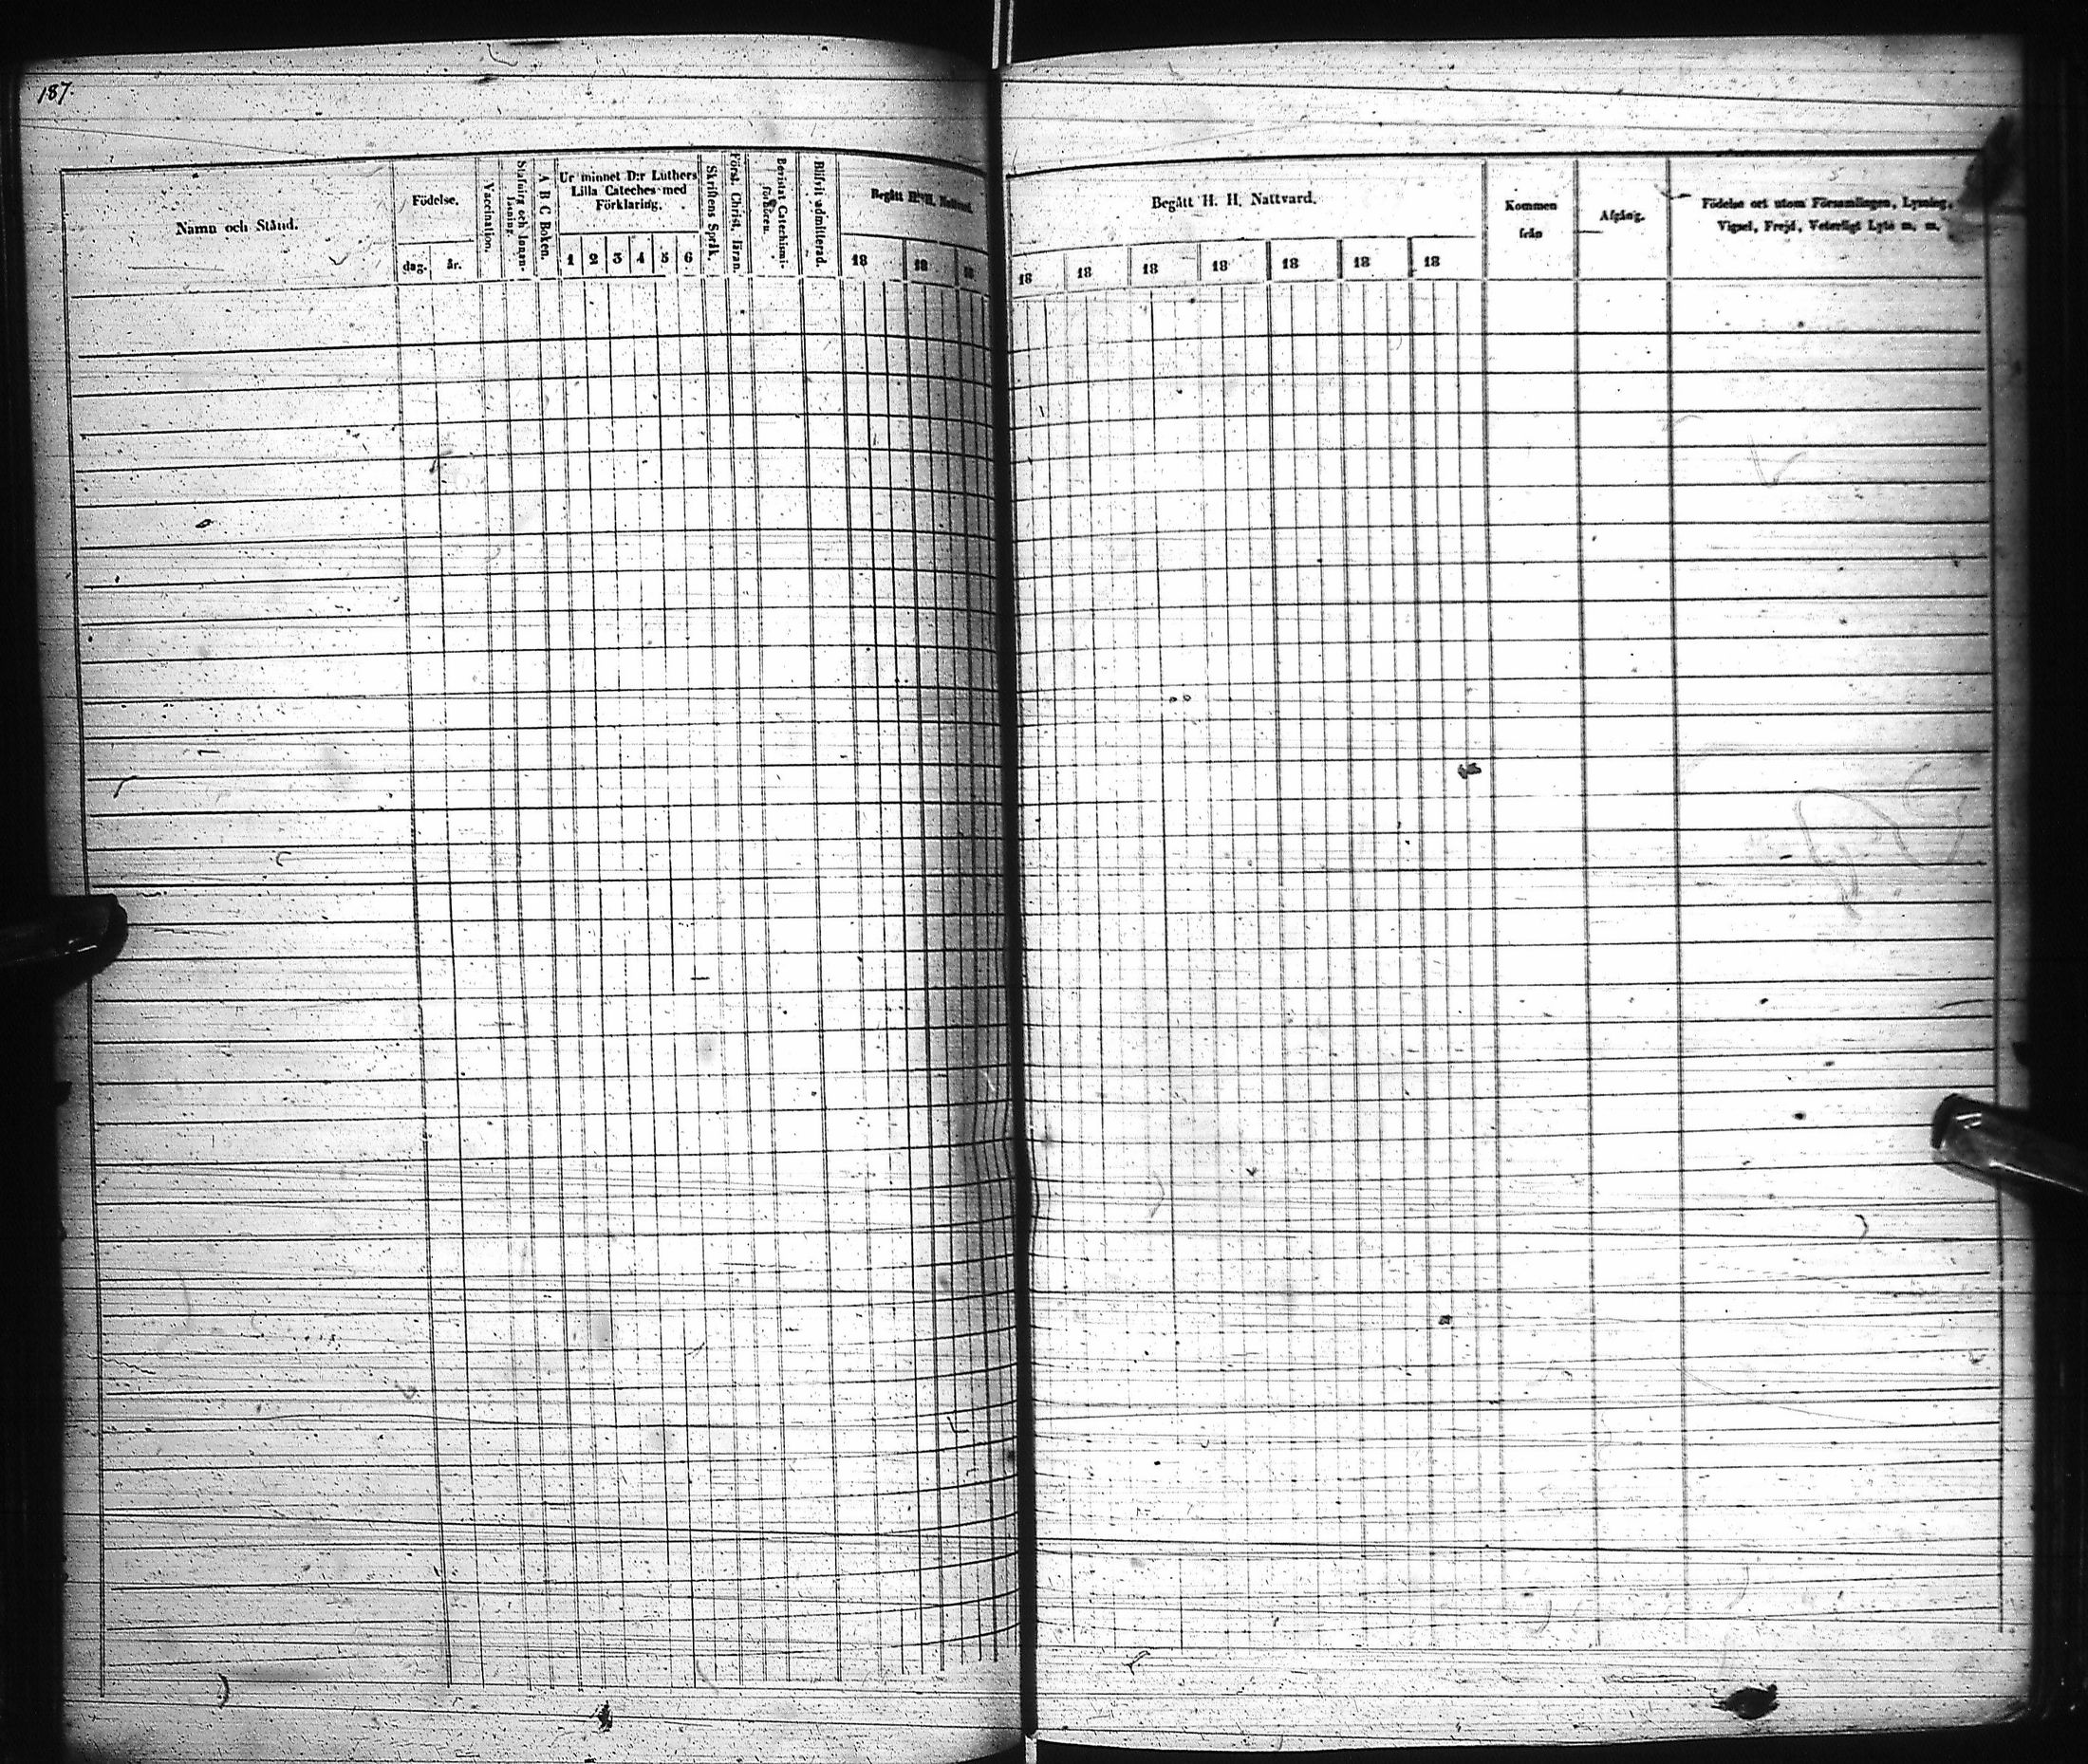 187.
Namn och Stånd.
Födelse.
dag.
år.
Vaccination.
Stafning och Innan-
läsning.
A B C Boken.
Ur minnet D:r Luthers
Lilla Cateches med
Förklaring.
1 2 3 4 5 6
Skriftens Språk.
Först. Christ. läran.
Bevistat Catechismi-
förhören.
Blifvit admitterad.
Begått H. H. Nattvard.
18 18 18
Begått H. H. Nattvard.
18 18 18 18 18 18 18
Kommen
från
Afgång.
Födelse ort utom Församlingen, Lysning,
Vigsel, Frejd, Veterligt Lyte m. m.